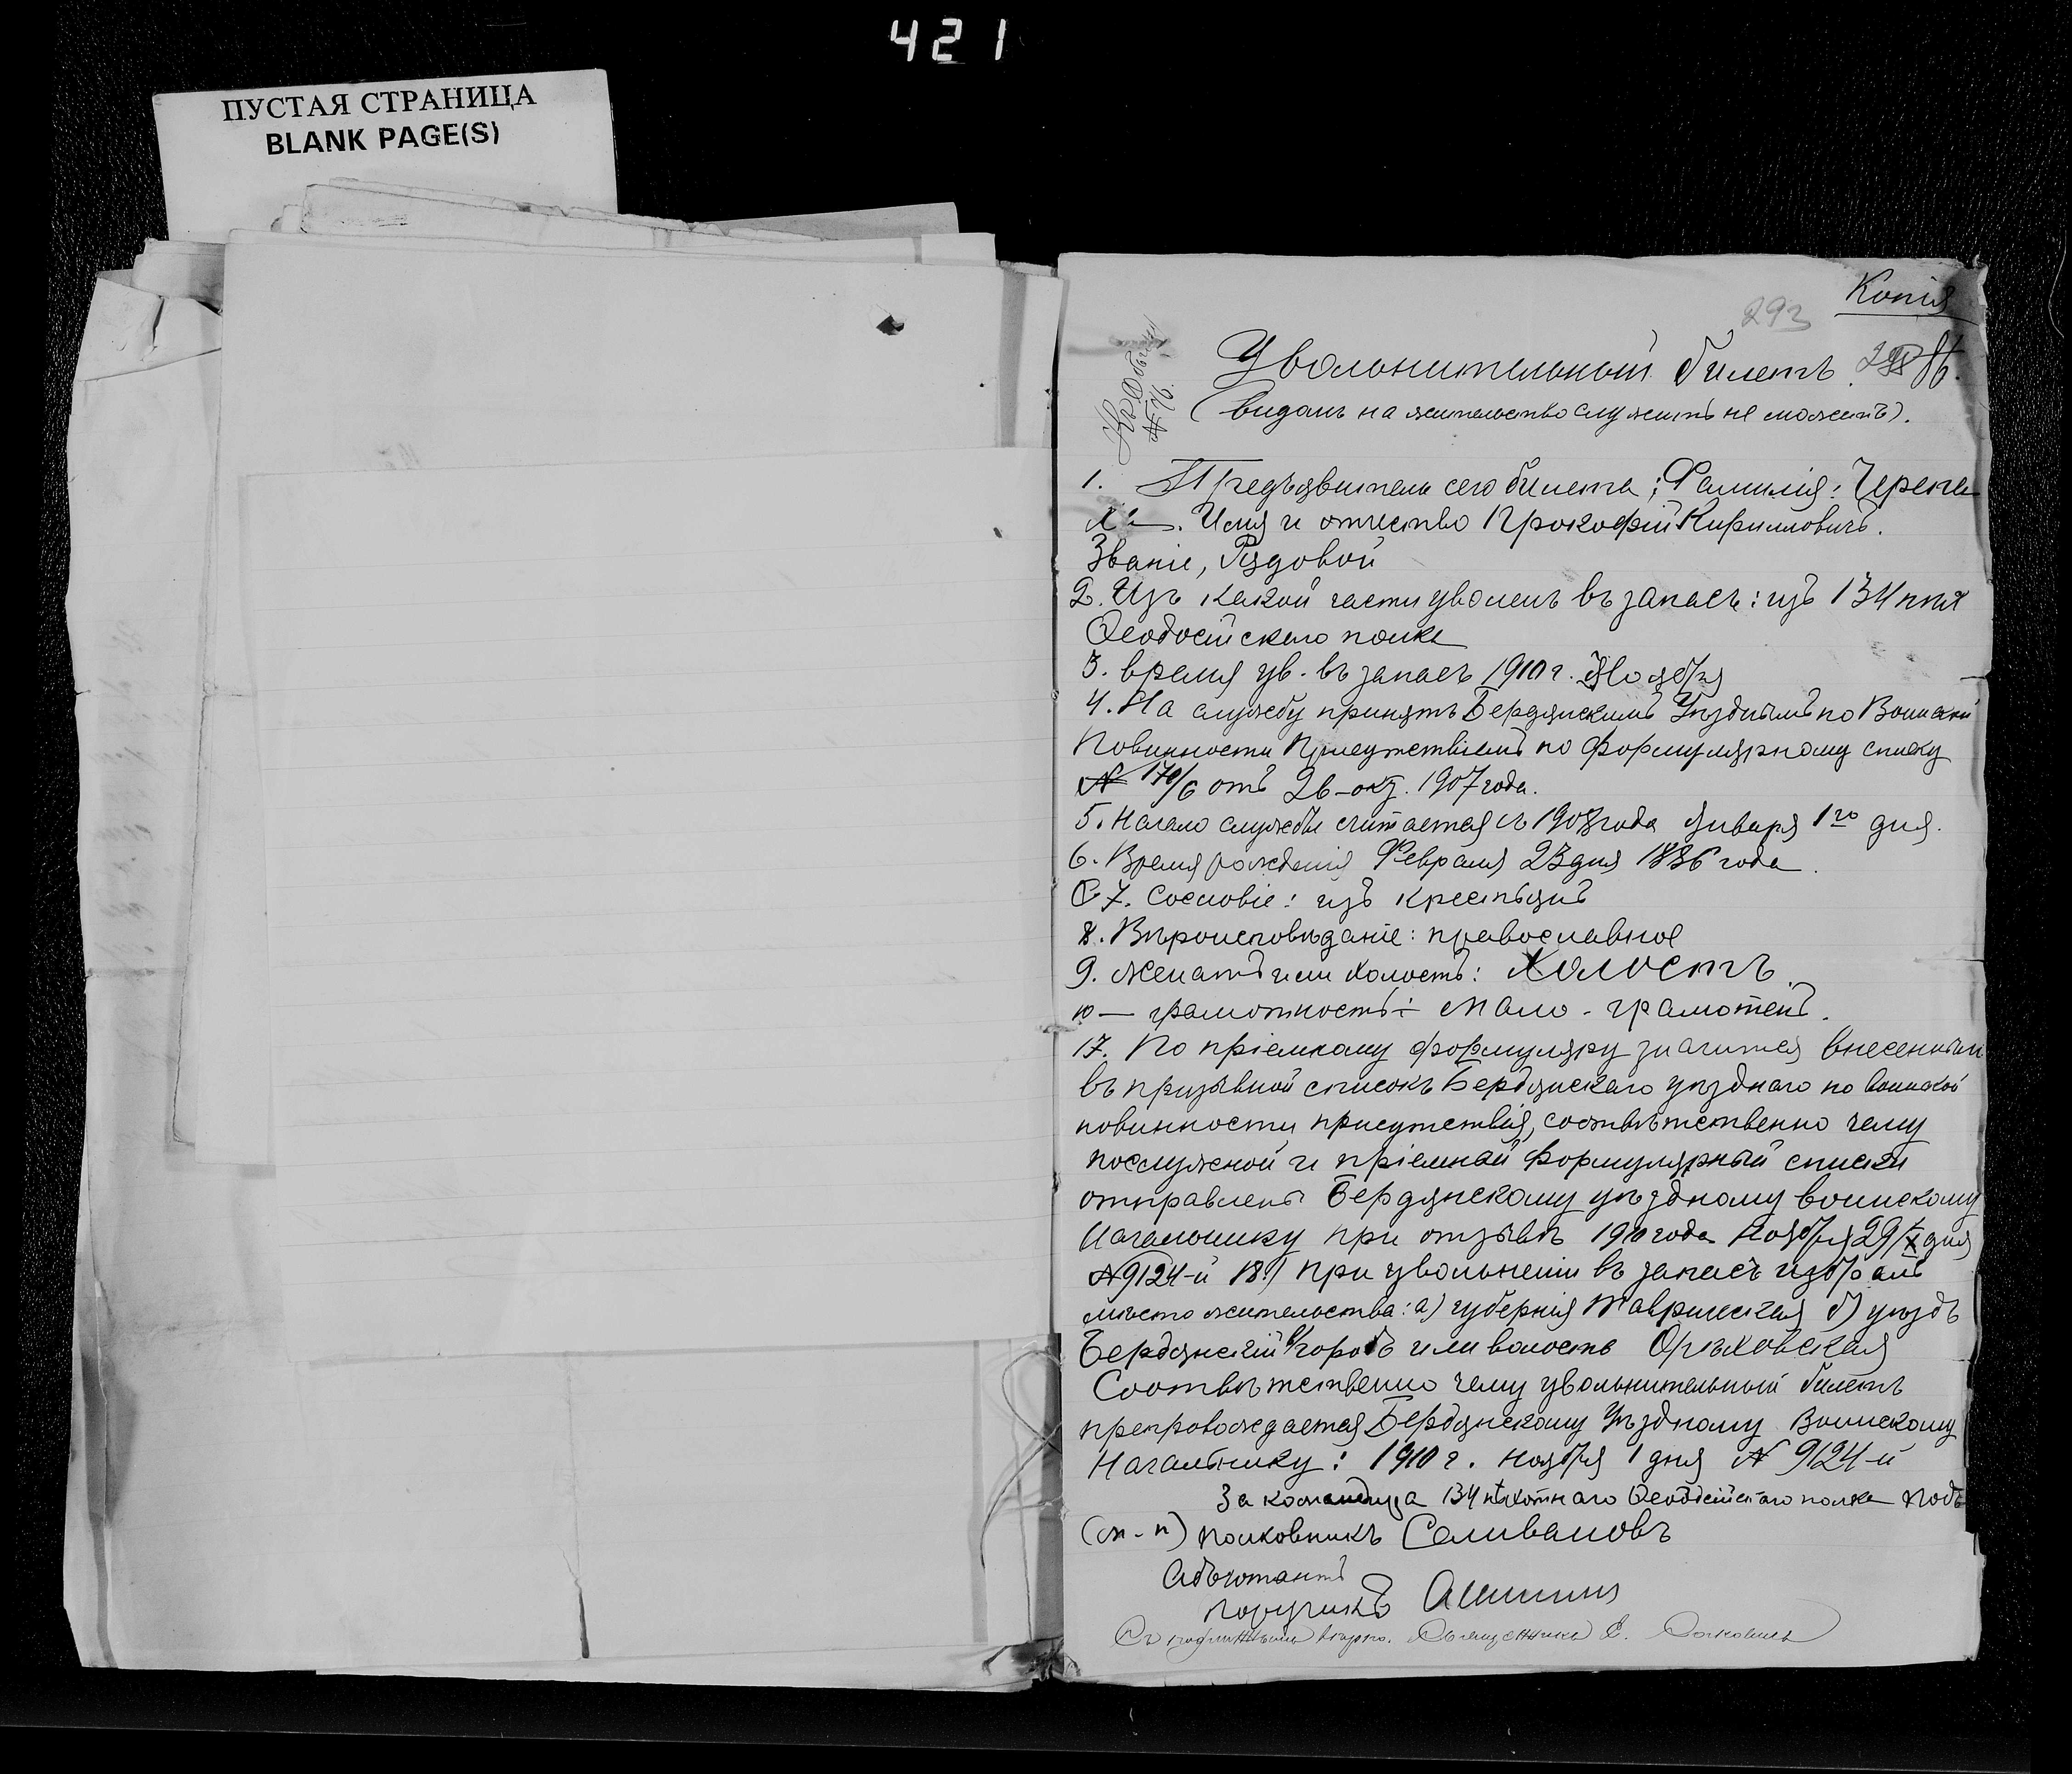 421
ПУСТАЯ СТРАНИЦА
BLANK PAGE(S)
Копія
293
Къ обыску
№ 76.
Увольнительный билетъ.
(видомъ на жительство служить не можетъ).
1. Предъявитель сего билета; Фамилія: Черепа
ха. Имя и отчество Прокофій Кирилловичъ.
Званіе, Рядовой
2. Изъ какой части уволенъ въ запасъ: изъ 134 пѣх
Ѳеодосійскаго полка
3. время ув. въ запасъ 1910 г. Ноября
4. На службу принятъ Бердянскимъ Уѣзднымъ по Воинской
Повинности Присутствіемъ по формулярному списку
№ 170/6 отъ 26-окт. 1907 года.
5. Начало службы считается съ 1908 года января 1го дня.
6. Время рожденія Февраля 23 дня 1886 года.
7. Сословіе: изъ крестьянъ
8. Вѣроисповѣданіе: православное
9. Женатъ или холостъ: Холостъ.
10 — грамотность: мало-грамотенъ.
17. По пріемному формуляру значится внесеннымъ
въ призывной списокъ Бердянскаго уѣзднаго по воинской
повинности присутствія, соотвѣтственно чему
послужной и пріемный формулярный списки
отправлены Бердянскому уѣздному воинскому
Начальнику при отзывѣ 1910 года Ноября 29/X дня
№ 9124-й 18) При увольненіи въ запасъ избралъ
мѣсто жительства: а) губернія Таврическая б) уѣздъ
Бердянскій в) городъ или волость Орѣховская
Соотвѣтственно чему увольнительный билетъ
препровождается Бердянскому Уѣздному Воинскому
Начальнику: 1910 г. ноября 1 дня № 9124-й
За командира 134 пѣхотнаго Ѳеодосійскаго полка Под
(м-п) полковникъ Селивановъ
Адъютантъ
поручикъ
Съ подлиннымъ вѣрно. Священникъ С.